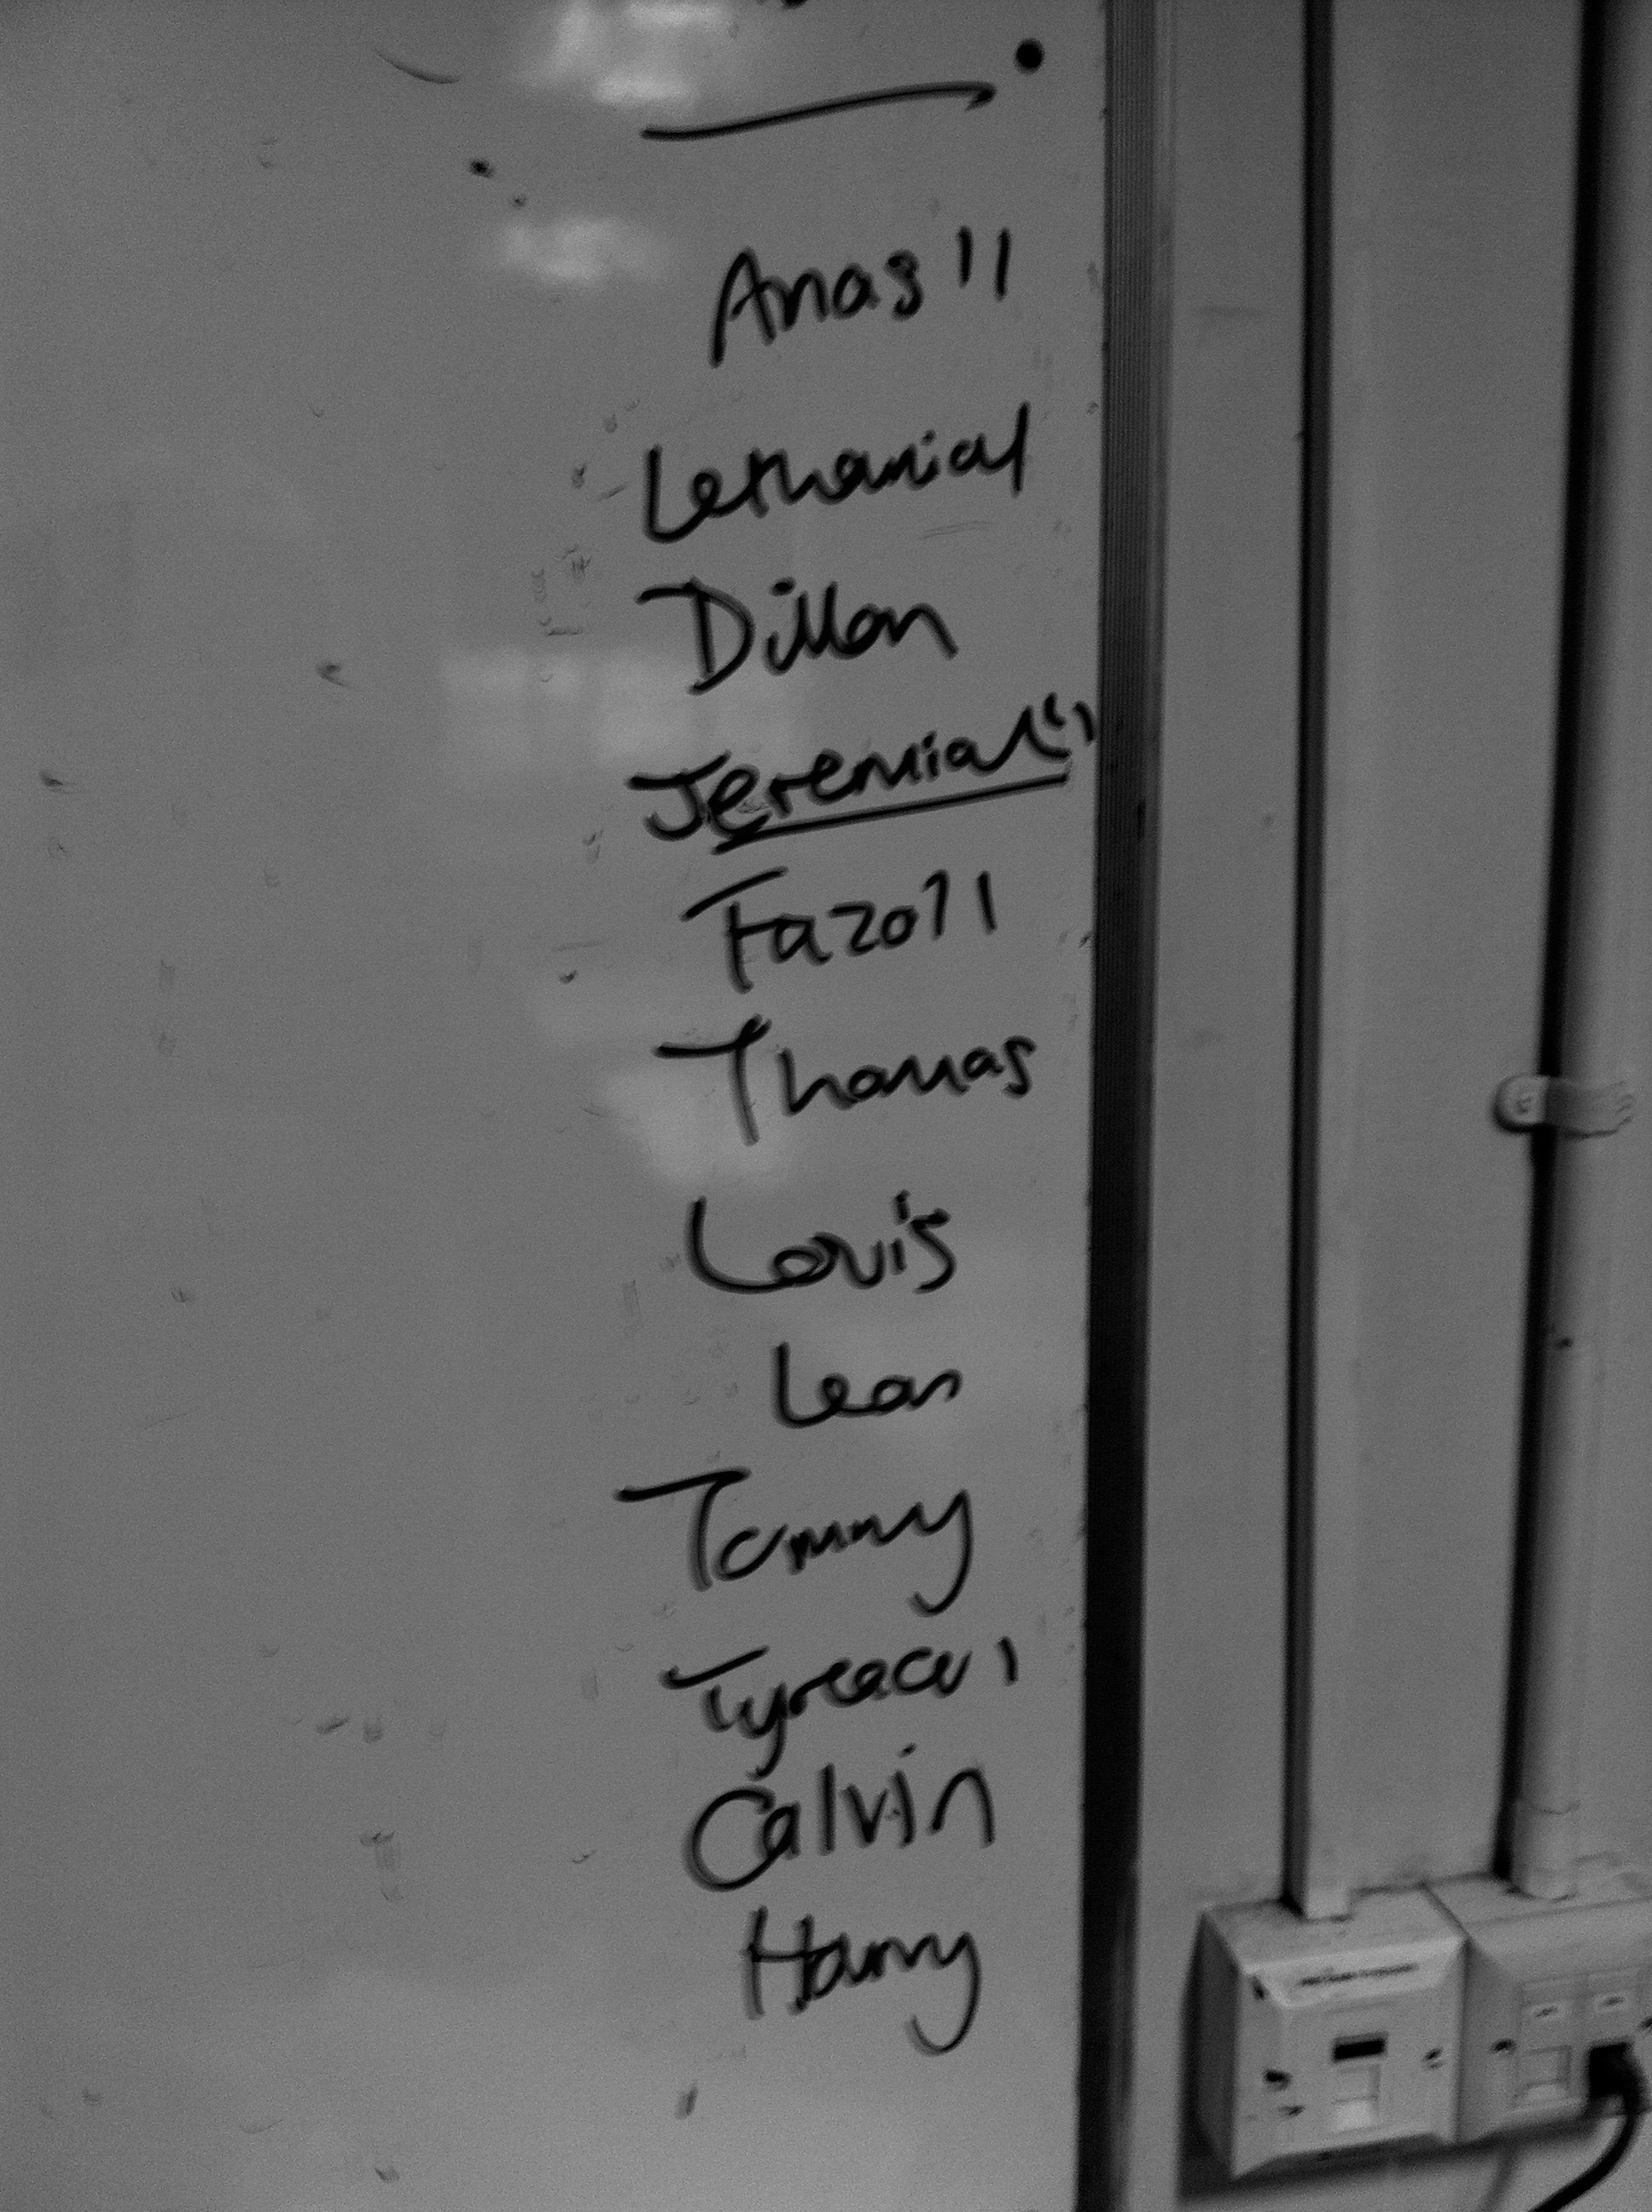 Anas 11
Lethanial
Dillon
Jeremiah 11
Fazo 11
Thomas
Louis
Leon
Tommy
Calvin
Harry